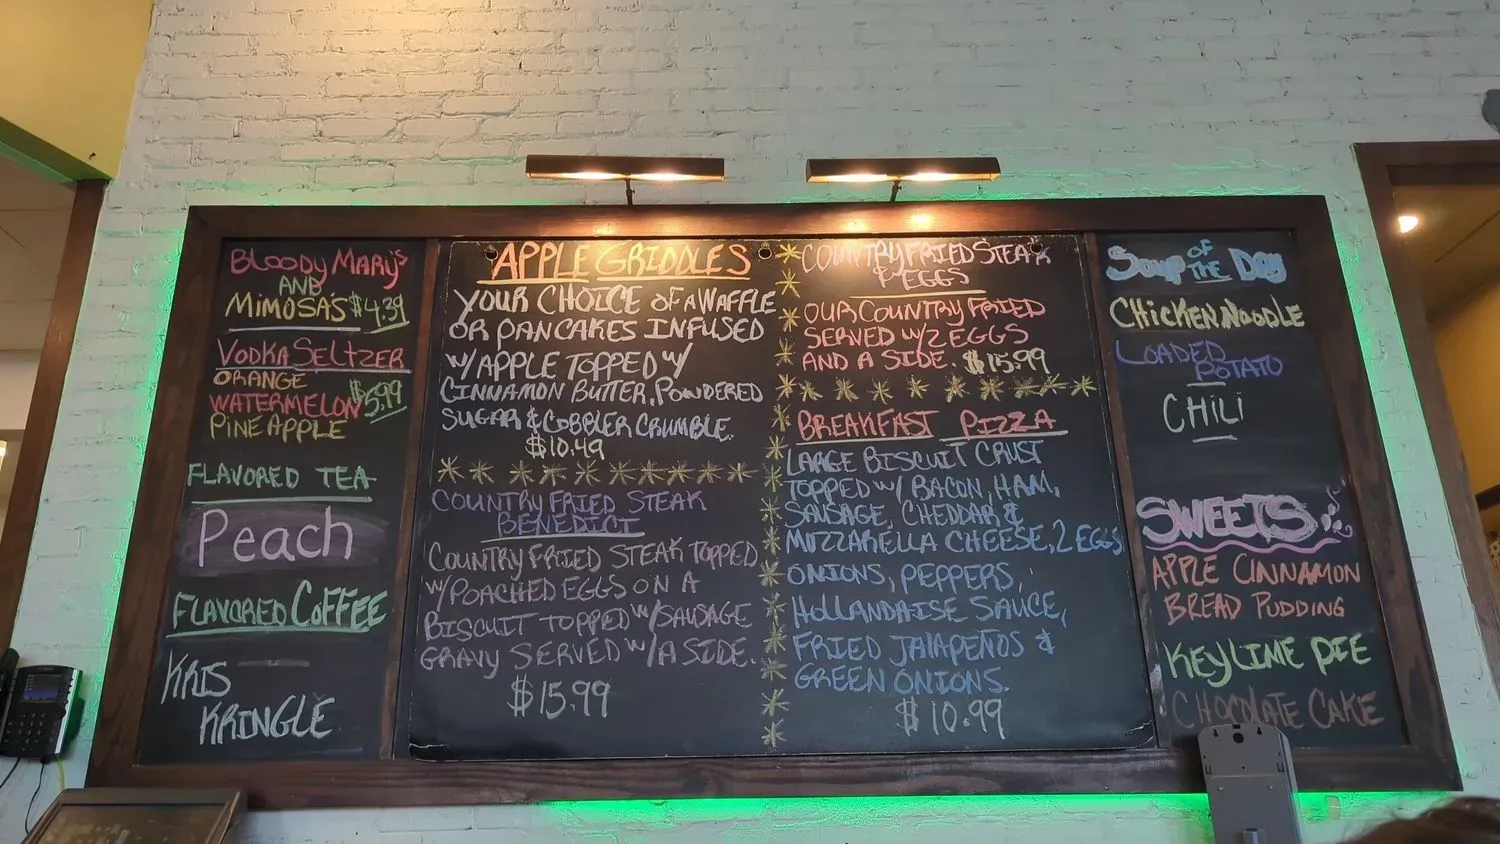 BLOODY MARY'S
AND
MIMOSA'S $4.39
VODKA SELTZER
ORANGE
WATERMELON $5.99
PINEAPPLE
FLAVORED TEA
Peach
FLAVORED COFFEE
KRIS
KRINGLE
APPLE GRIDDLES
YOUR CHOICE OF A WAFFLE
OR PANCAKES INFUSED
W/ APPLE TOPPED W/
CINNAMON BUTTER, POWDERED
SUGAR & COBBLER CRUMBLE.
$10.49
COUNTRY FRIED STEAK
BENEDICT
COUNTRY FRIED STEAK TOPPED
W/ POACHED EGGS ON A
BISCUIT TOPPED W/ SAUSAGE
GRAVY SERVED W/ A SIDE.
$15.99
COUNTRY FRIED STEAK
& EGGS
OUR COUNTRY FRIED
SERVED W/ 2 EGGS
AND A SIDE. $15.99
BREAKFAST PIZZA
LARGE BISCUIT CRUST
TOPPED W/ BACON, HAM,
SAUSAGE, CHEDDAR &
MOZZARELLA CHEESE, 2 EGGS
ONIONS, PEPPERS,
HOLLANDAISE SAUCE,
FRIED JALAPEÑOS &
GREEN ONIONS.
$10.99
SOUP OF THE DAY
CHICKEN NOODLE
LOADED
POTATO
CHILI
SWEETS
APPLE CINNAMON
BREAD PUDDING
KEY LIME PIE
CHOCOLATE CAKE